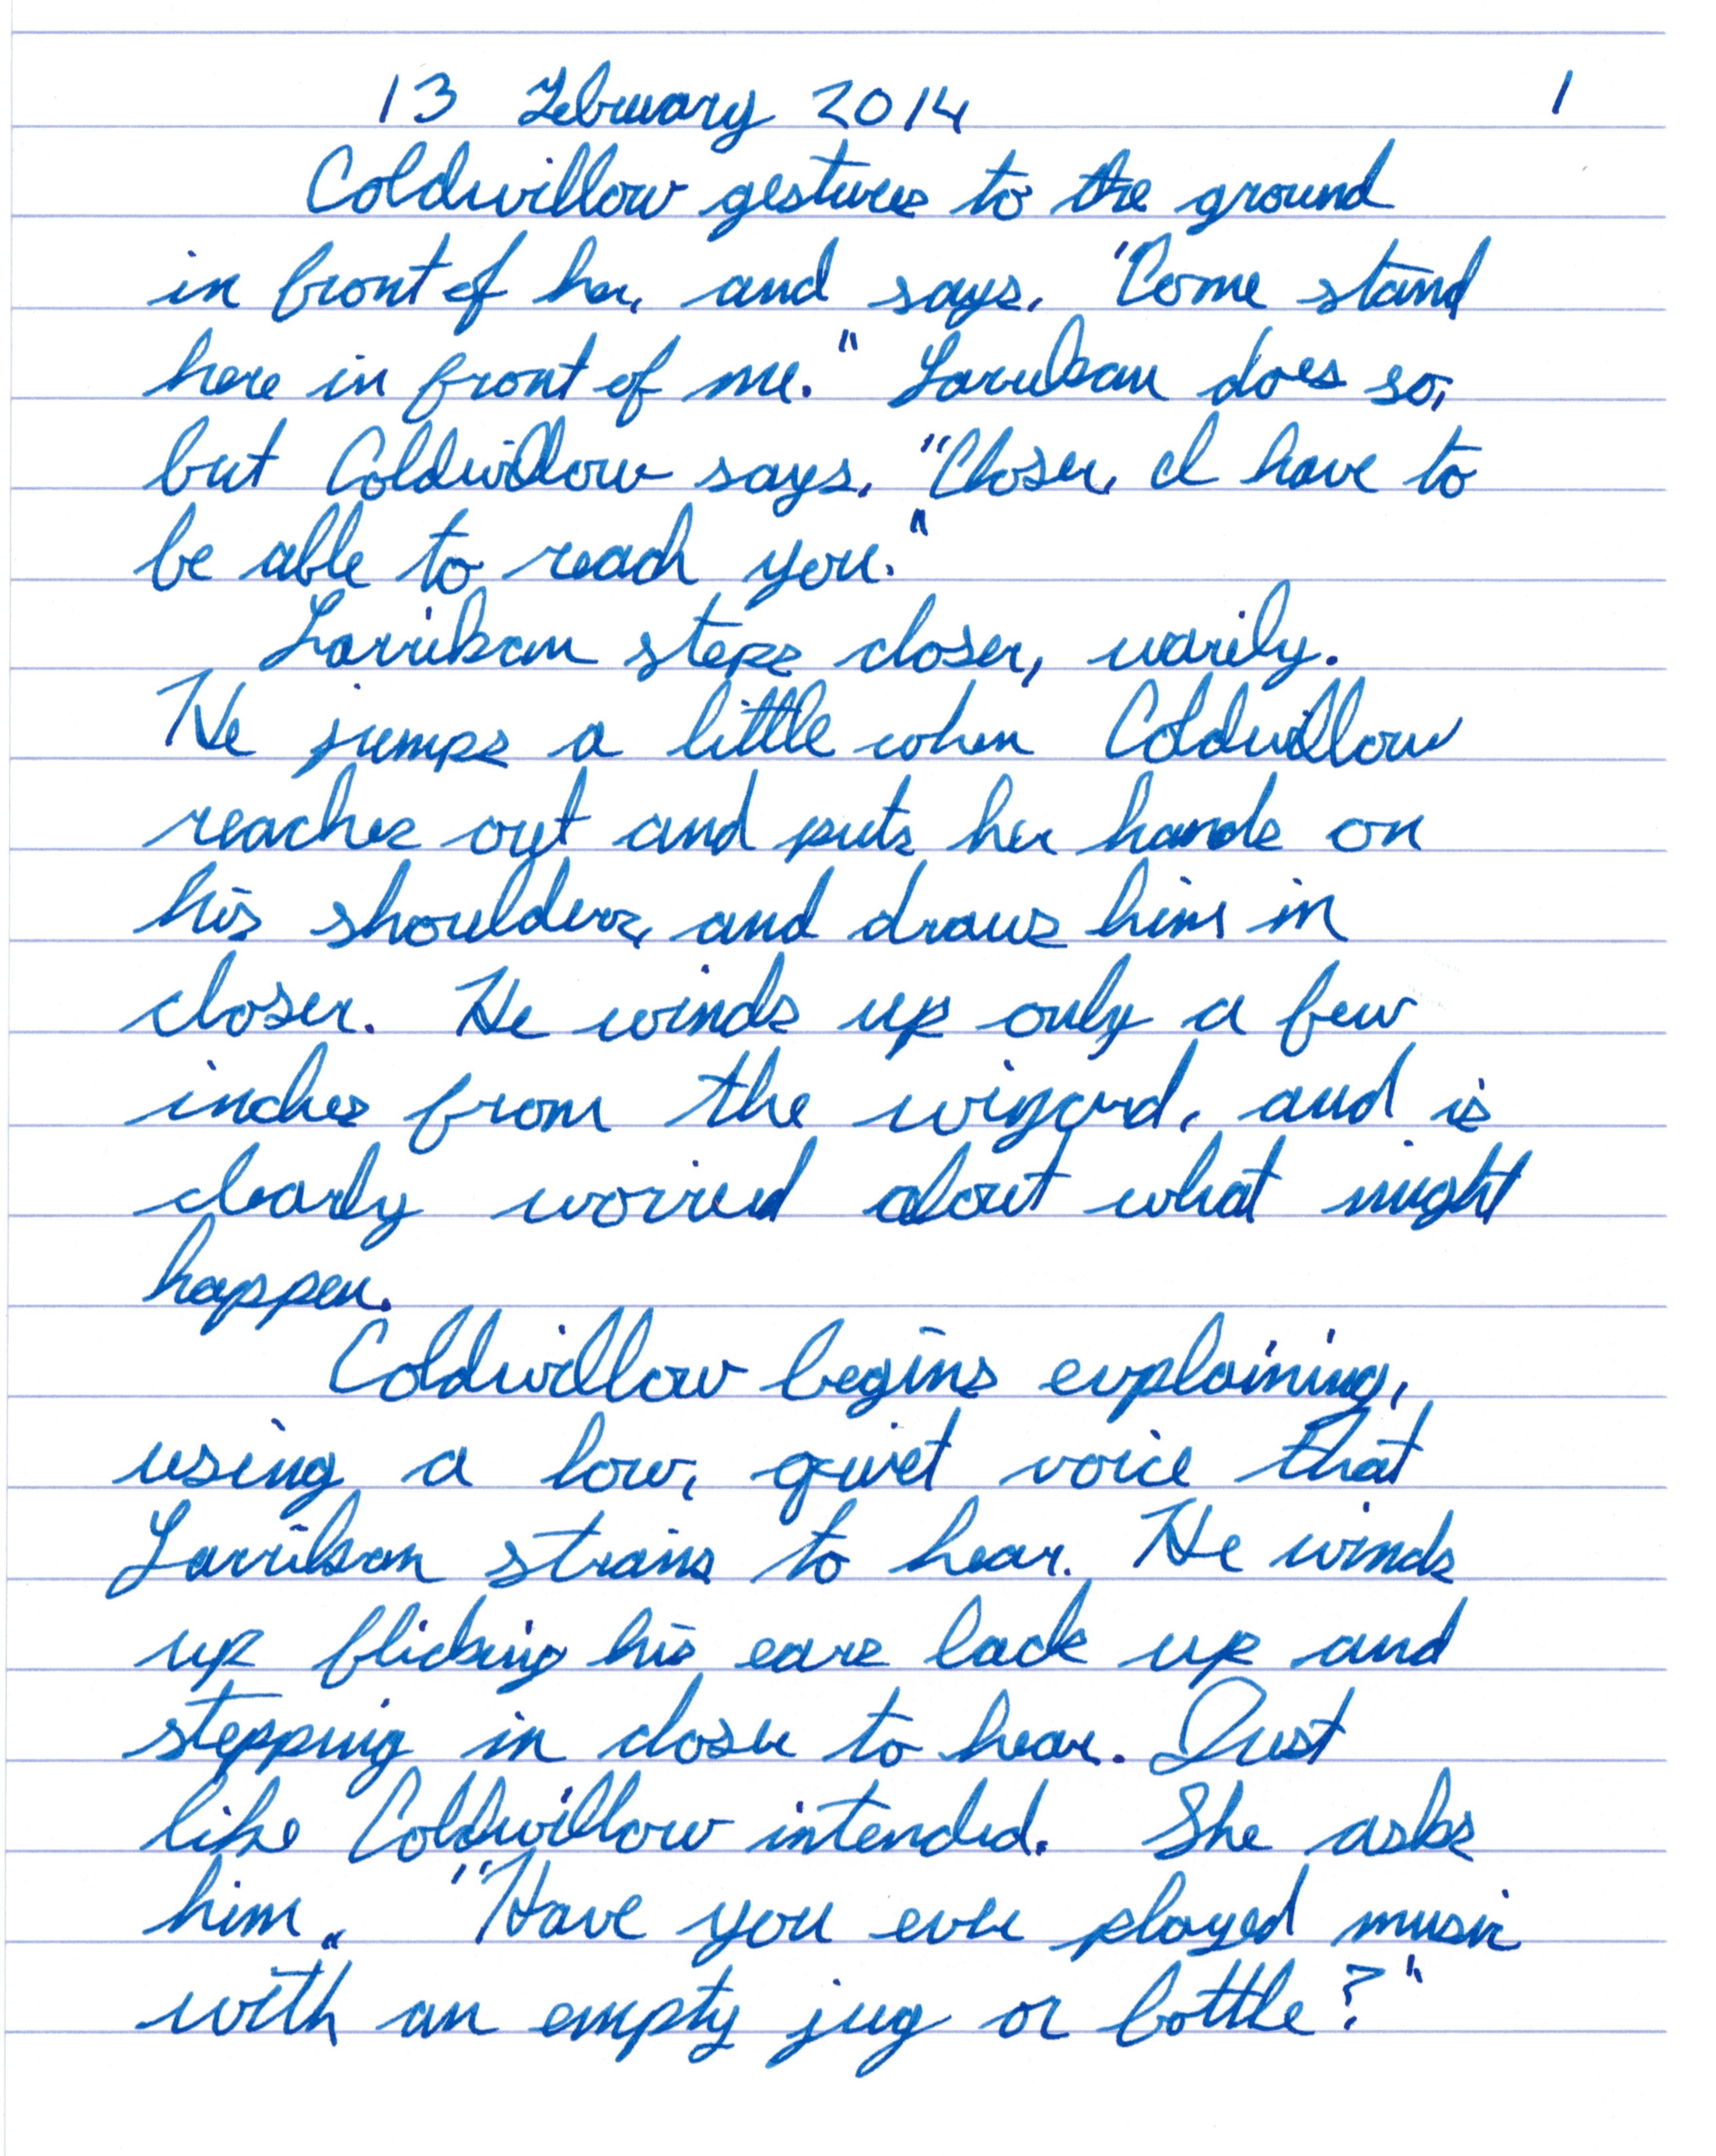 13 February 2014 1
Coldwillow gestures to the ground
in front of her, and says, "Come stand
here in front of me." Larrikan does so,
but Coldwillow says, "Closer, I have to
be able to reach you."
Larrikan steps closer, warily.
He jumps a little when Coldwillow
reaches out and puts her hands on
his shoulders, and draws him in
closer. He winds up only a few
inches from the wizard, and is
clearly worried about what might
happen.
Coldwillow begins explaining,
using a low, quiet voice that
Larrikan strains to hear. He winds
up flicking his ears back up and
stepping in closer to hear. Just
like Coldwillow intended. She asks
him, "Have you ever played music
with an empty jug or bottle?"